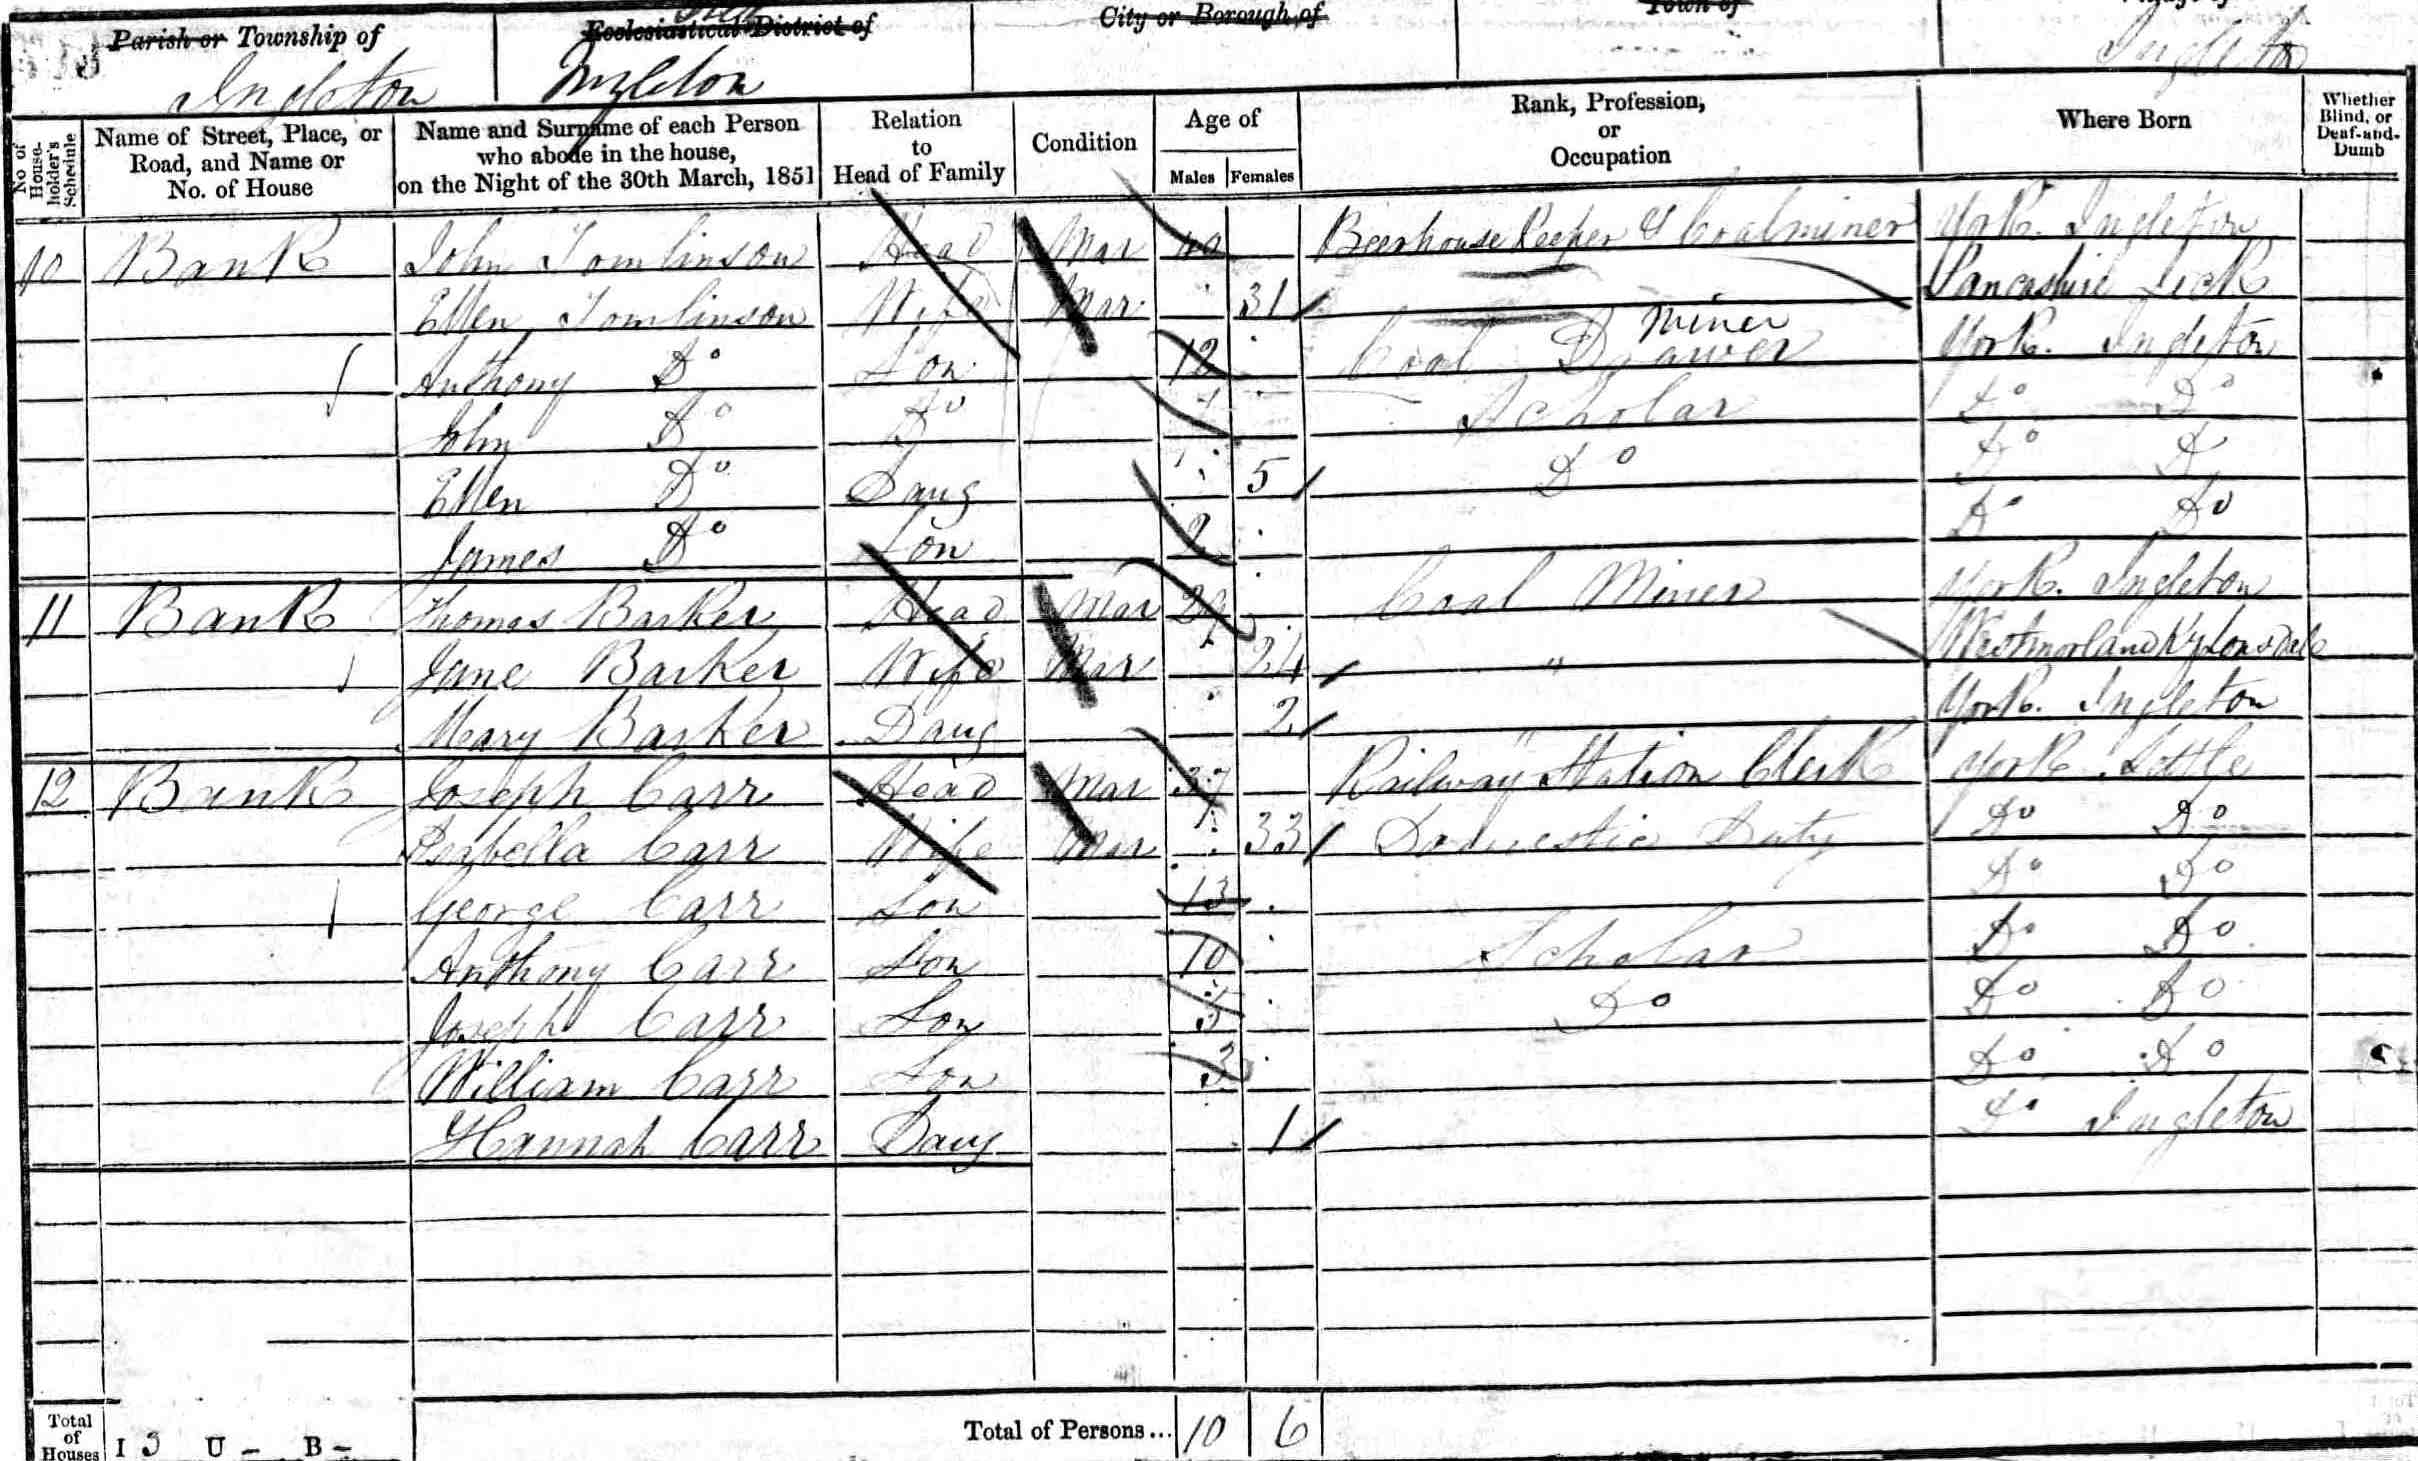 Parish or Township of
Ingleton
Ecclesiastical District of
Ingleton
City or Borough of
Town of
Ingleton
No of House-holder's Schedule
Name of Street, Place, or Road, and Name or No. of House
Name and Surname of each Person who abode in the house, on the Night of the 30th March, 1851
Relation to Head of Family
Condition
Age of
Males Females
Rank, Profession, or Occupation
Where Born
Whether Blind, or Deaf-and-Dumb
10 Bank John Tomlinson Head Mar Beerhouse Keeper & Coalminer York. Ingleton
Ellen Tomlinson Wife Mar 31 Lancashire Leck
Anthony Do Son 12 Coal Drawer miner York. Ingleton
John Do Do Scholar Do Do
Ellen Do Daug 5 Do Do D
James Do Son 2 Do Do
11 Bank Thomas Barker Head Mar Coal Miner York. Ingleton
Jane Barker Wife Mar 24 " Westmorland Ky Lonsdale
Mary Barker Daug 2 " York. Ingleton
12 Bank Joseph Carr Head Mar 37 Railway Station Clerk York Settle
Isabella Carr Wife Mar 33 Domestic Duty Do Do
George Carr Son 13 Do Do
Anthony Carr Son 10 Scholar Do Do
Joseph Carr Son 5 Do Do Do
William Carr Son 3 Do Do
Hannah Carr Daug 1 Do Ingleton
Total of Houses I 3 U - B -
Total of Persons... 10 6